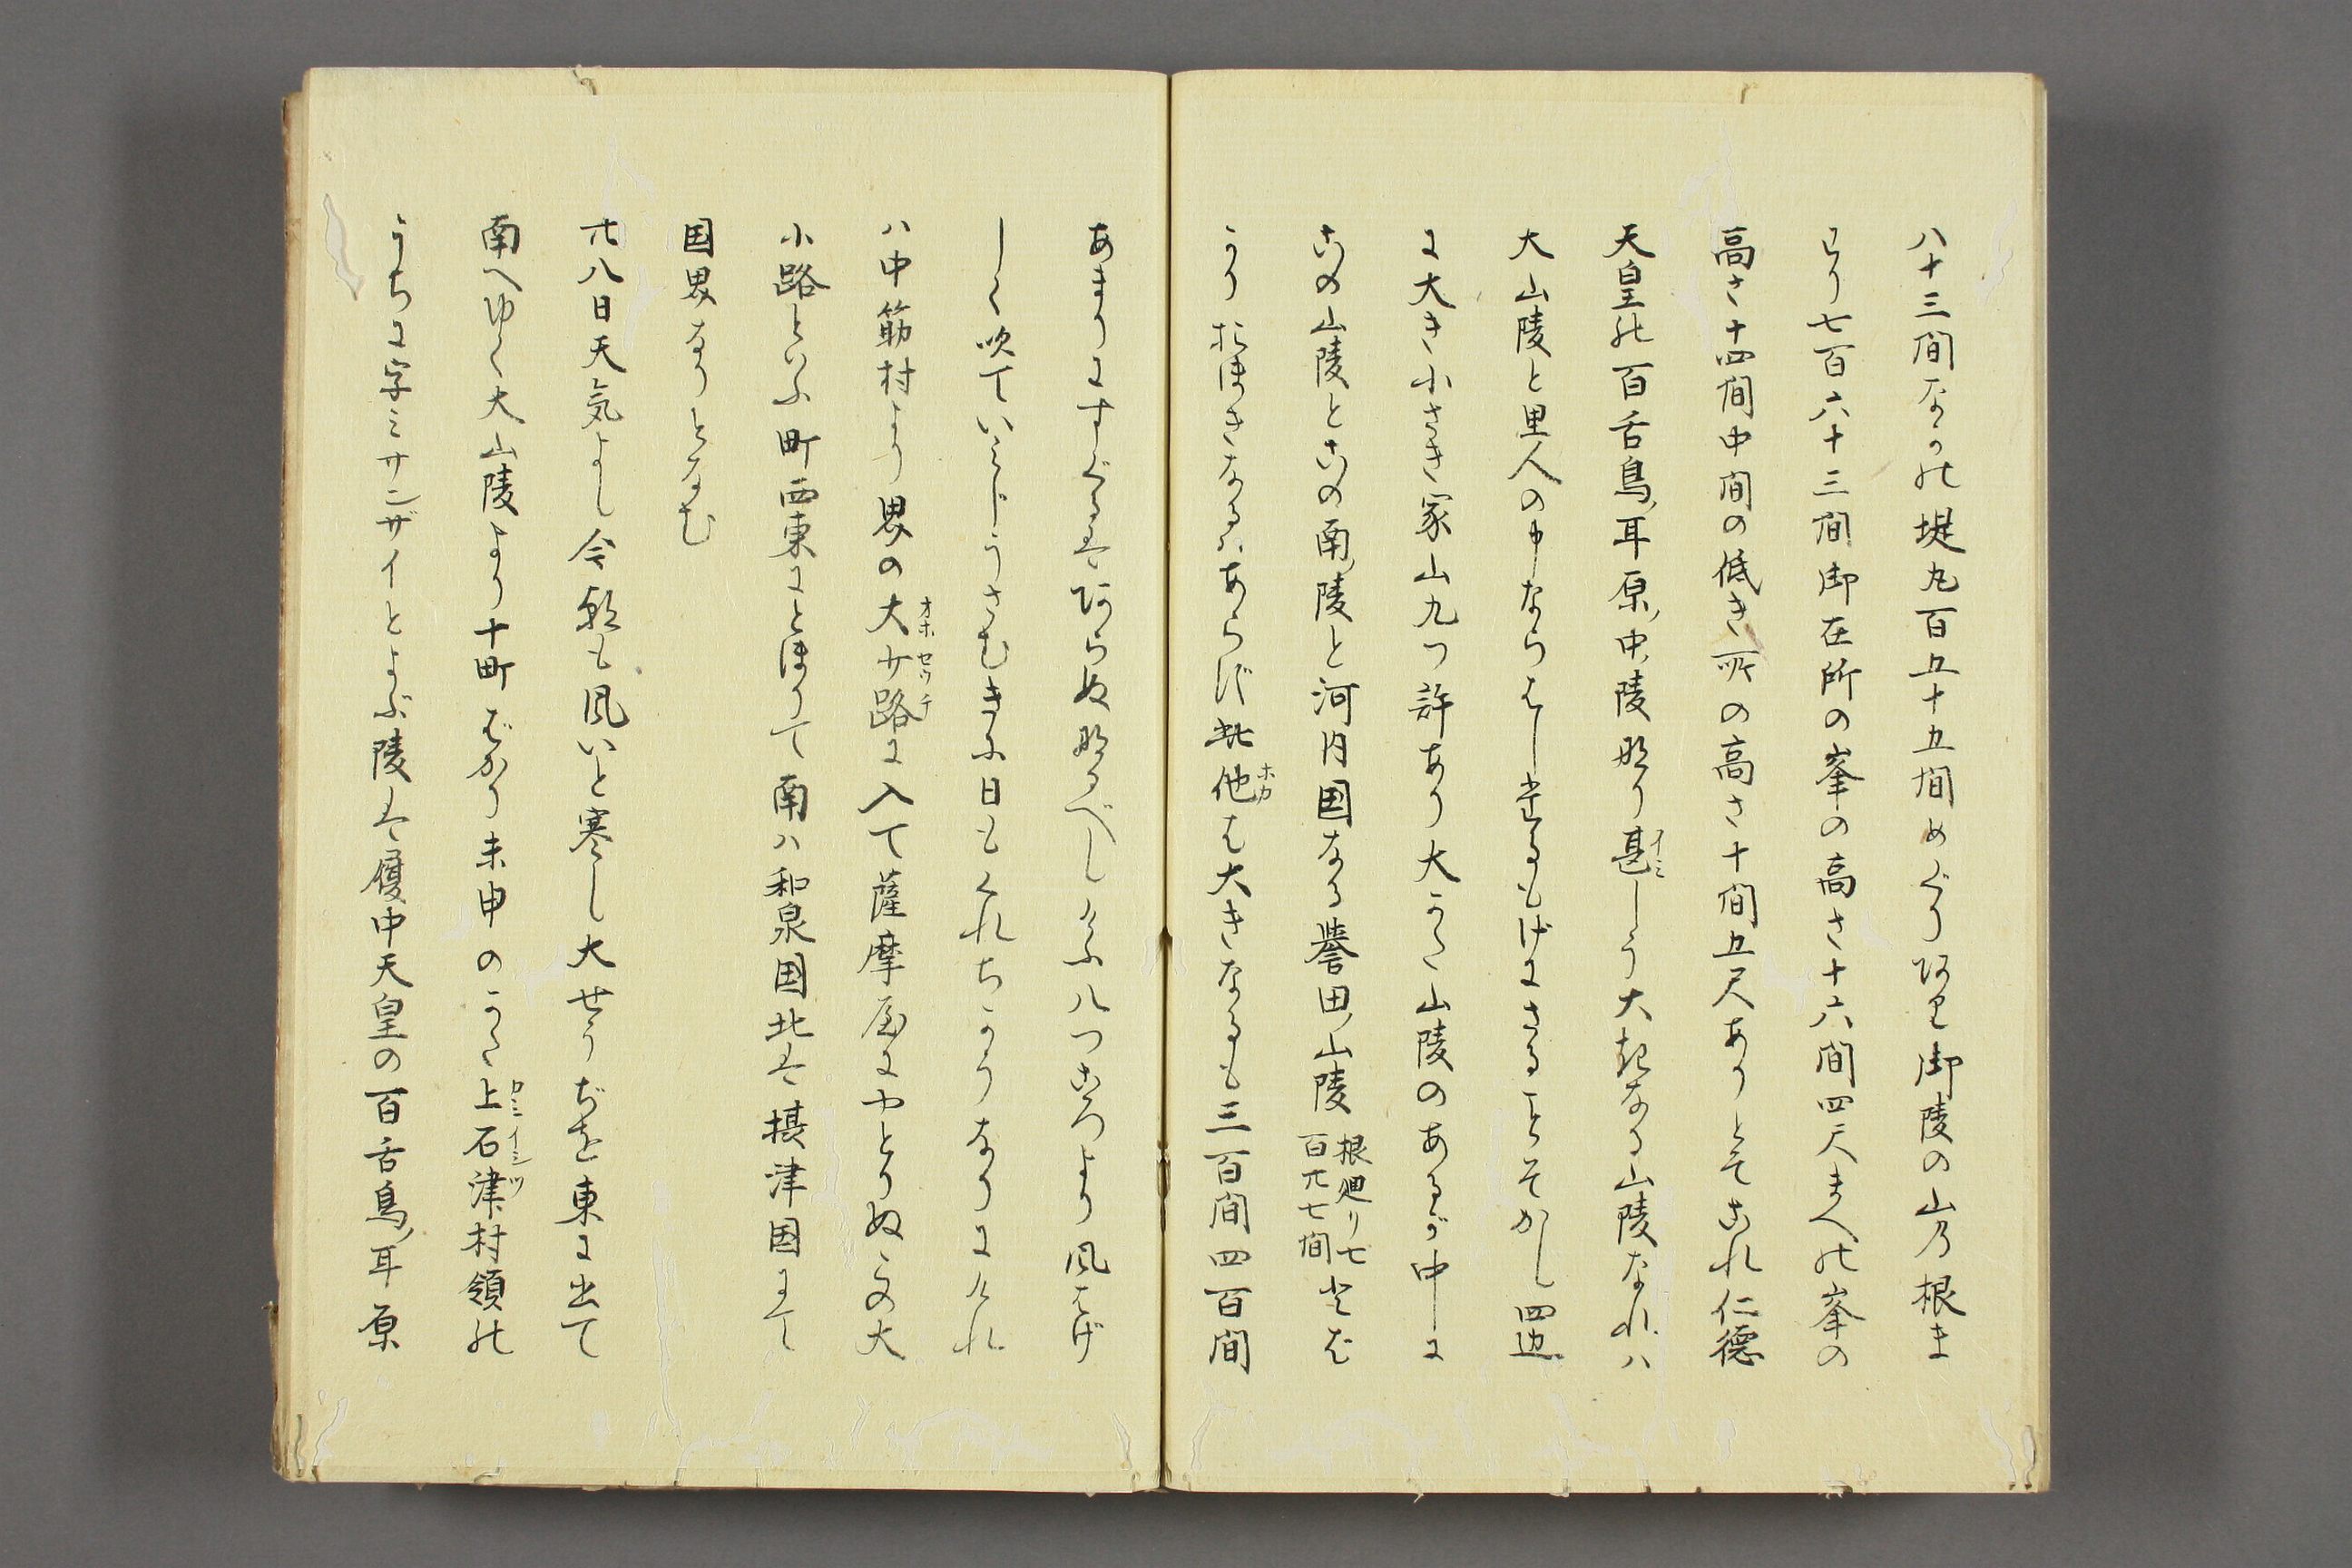 八十三間なかの堤九百五十五間めぐりあり御陵の山乃根ま
はり七百六十三間御在所の峯の高さ十六間四尺まへの峯の
高さ十四間中間の低き所の高さ十間五尺ありとそこれ仁徳
天皇の百舌鳥ノ耳原ノ中ノ陵なり甚しう大きなる山陵なれハ
大山陵と里人の申ならはしたるもげにさることそかし四辺
に大き小さき冢山九つ許あり大かた山陵のあるが中に
この山陵とこの南ノ陵と河内国なる誉田ノ山陵根廻リ七百廿七間とば
かりおほきなるハあらじ此他は大きなるも三百間四百間
あまりにすぐるはあらぬなるべしけふ八つころより風はげ
しく吹ていみじうさむきに日もくれちかうなりにけれ
ハ中筋村より堺の大少路に入て薩摩屋にやとりぬこの大
小路といふ町西東にとほりて南ハ和泉国北は摂津国にて
国界なりとなむ
廿八日天気よし今朝も風いと寒し大せうぢを東に出て
南へゆく大山陵より十町ばかり未申のかた上石津村領の
うちに字ミサンザイとよぶ陵は履中天皇の百舌鳥ノ耳原